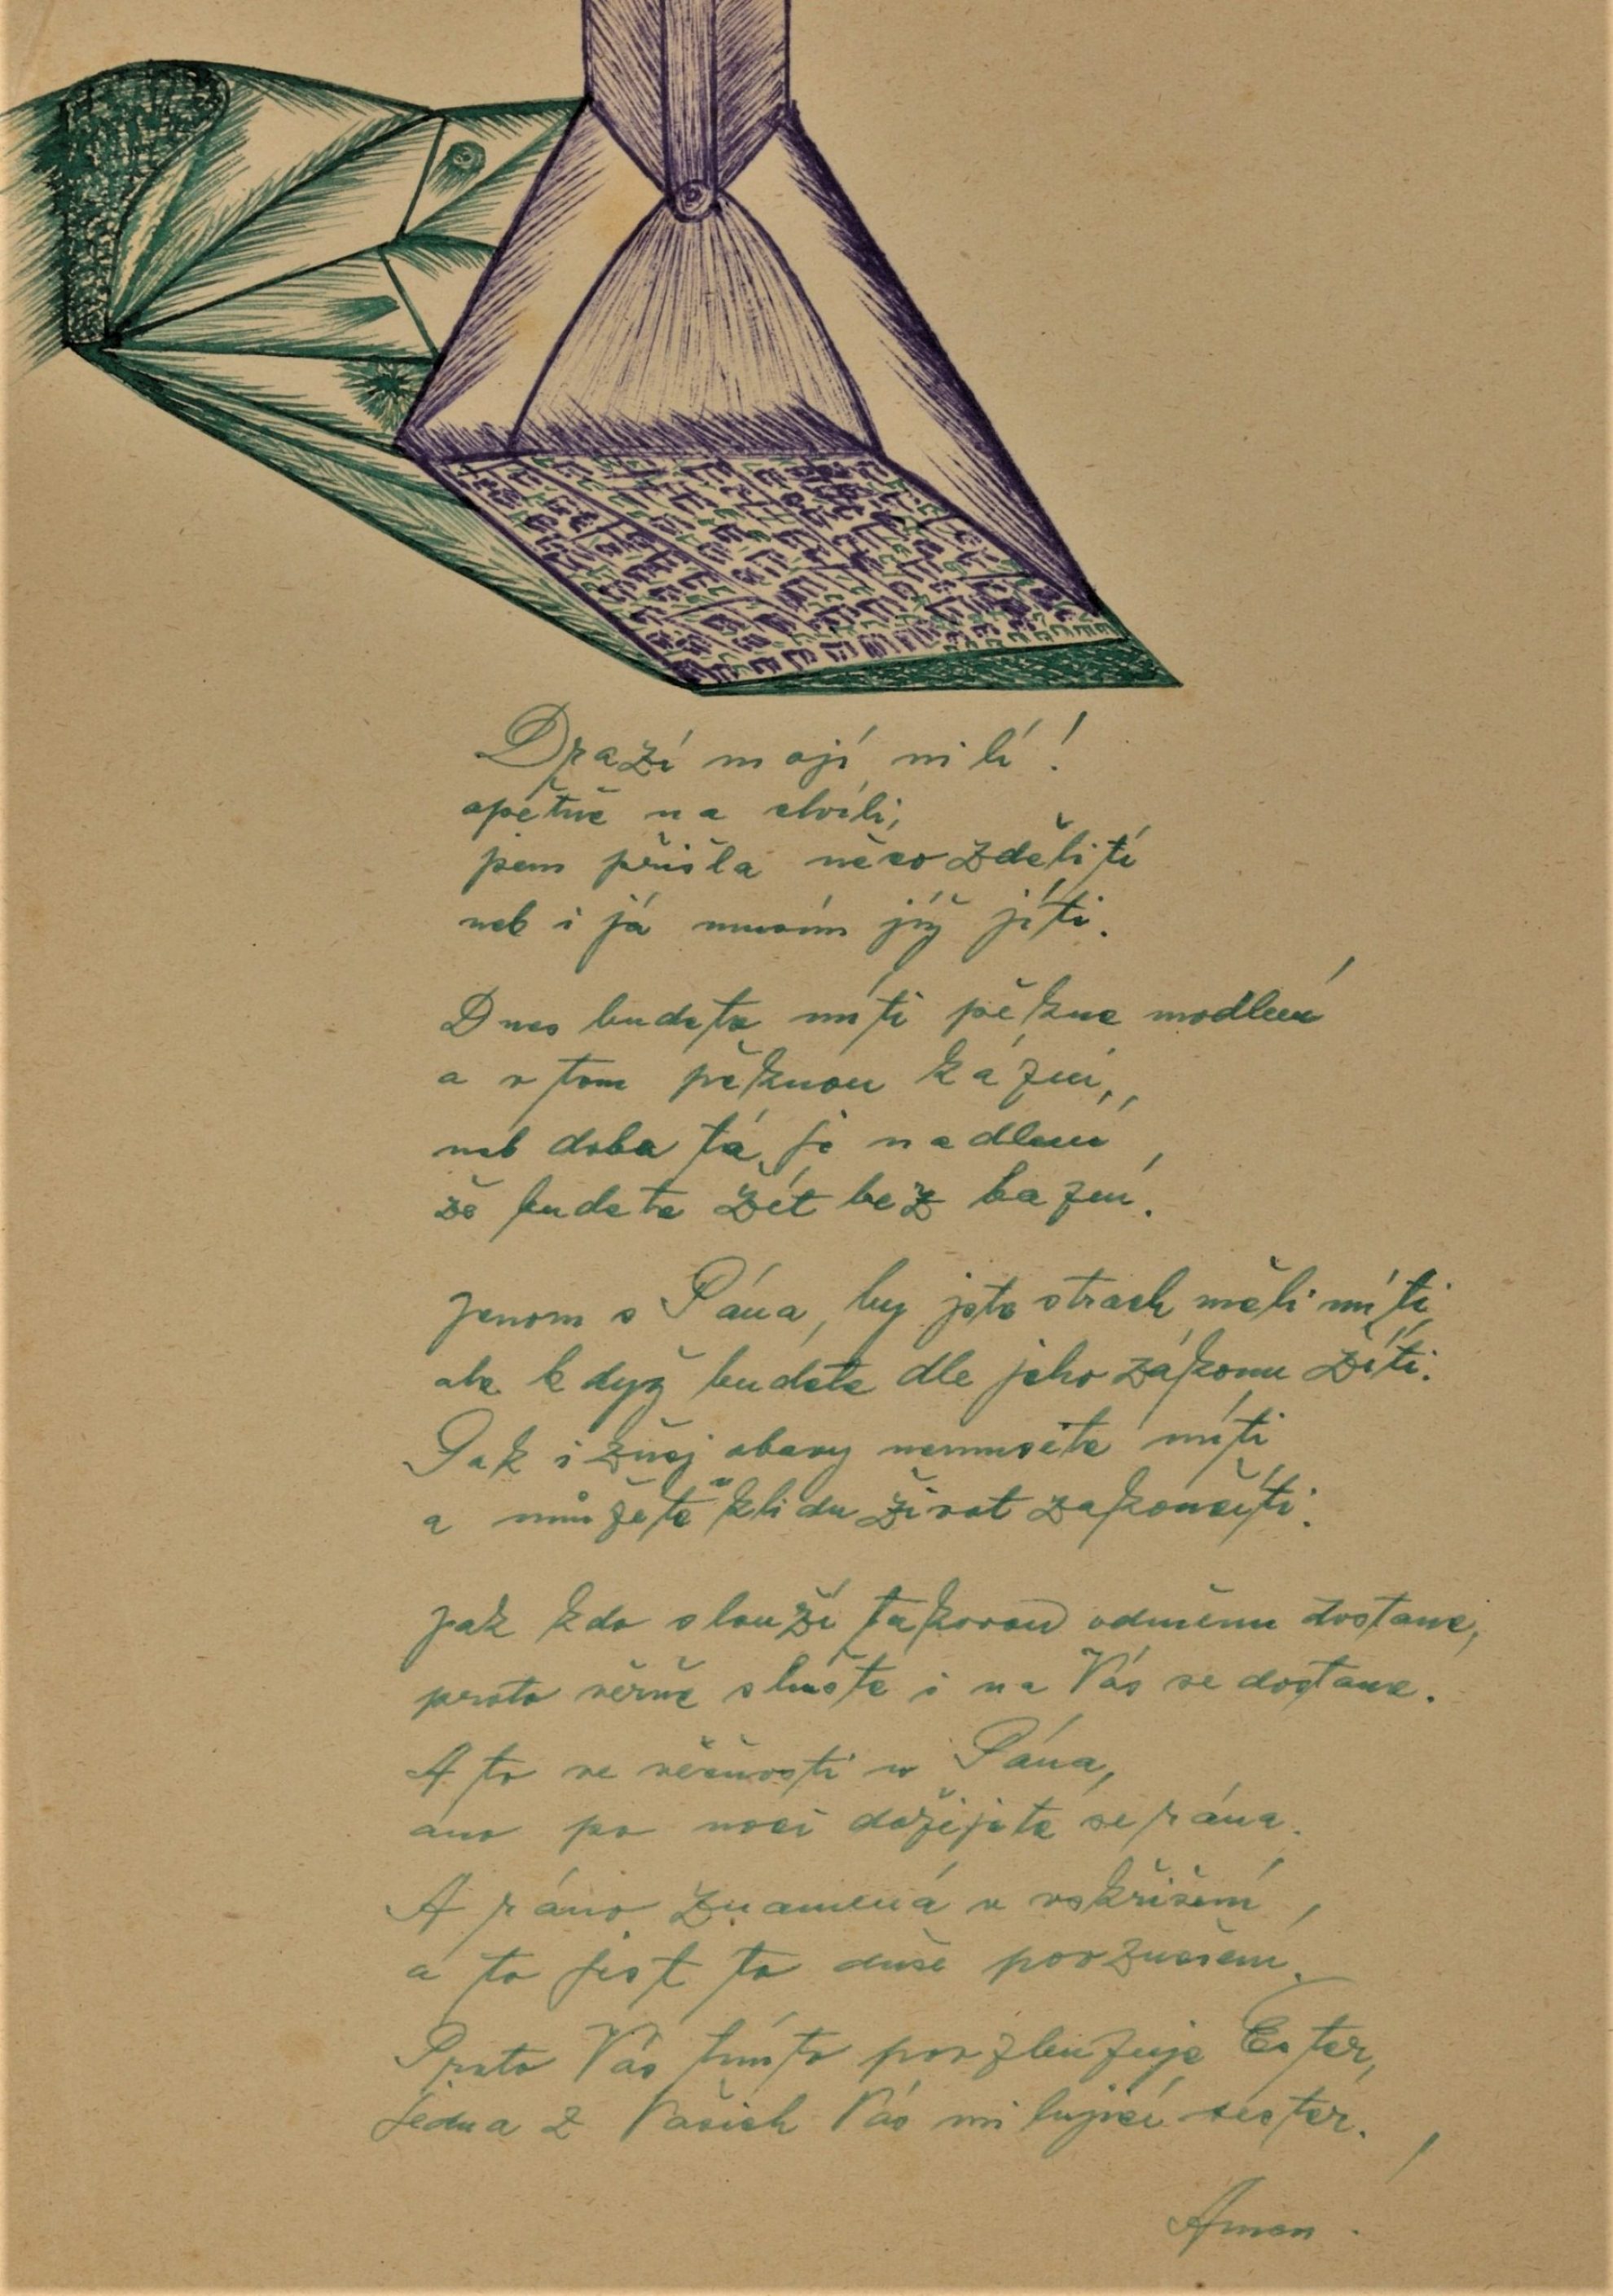 Drazí mojí milí!
opětně na chvíli,
jsem přišla něco zděliti
neb i já musím jíž jíti.
Dnes budete míti pěkne modlení
a v tom pěknou kázní,
neb doba tá je nadlení,
že budete žít bez bazní.
Jenom s Pána, by jste strach měli míti,
ale když budete dle jeho zákonu žíti.
Pak i zněj obavy nemusíte míti
a můžete klidu život zakončíti.
Jak kdo slouží takovou odměnu dostane,
proto věrně slušte i na Vás se dostane.
A to ve věčnosti u Pána,
ano po noci dožijete se rána.
A ráno znamená u vskříšení,
a to jest to duše povznesení.
Proto Vás tímto povzbuzuje Ester,
jedna z Vašich Vás milující sester.
Amen.